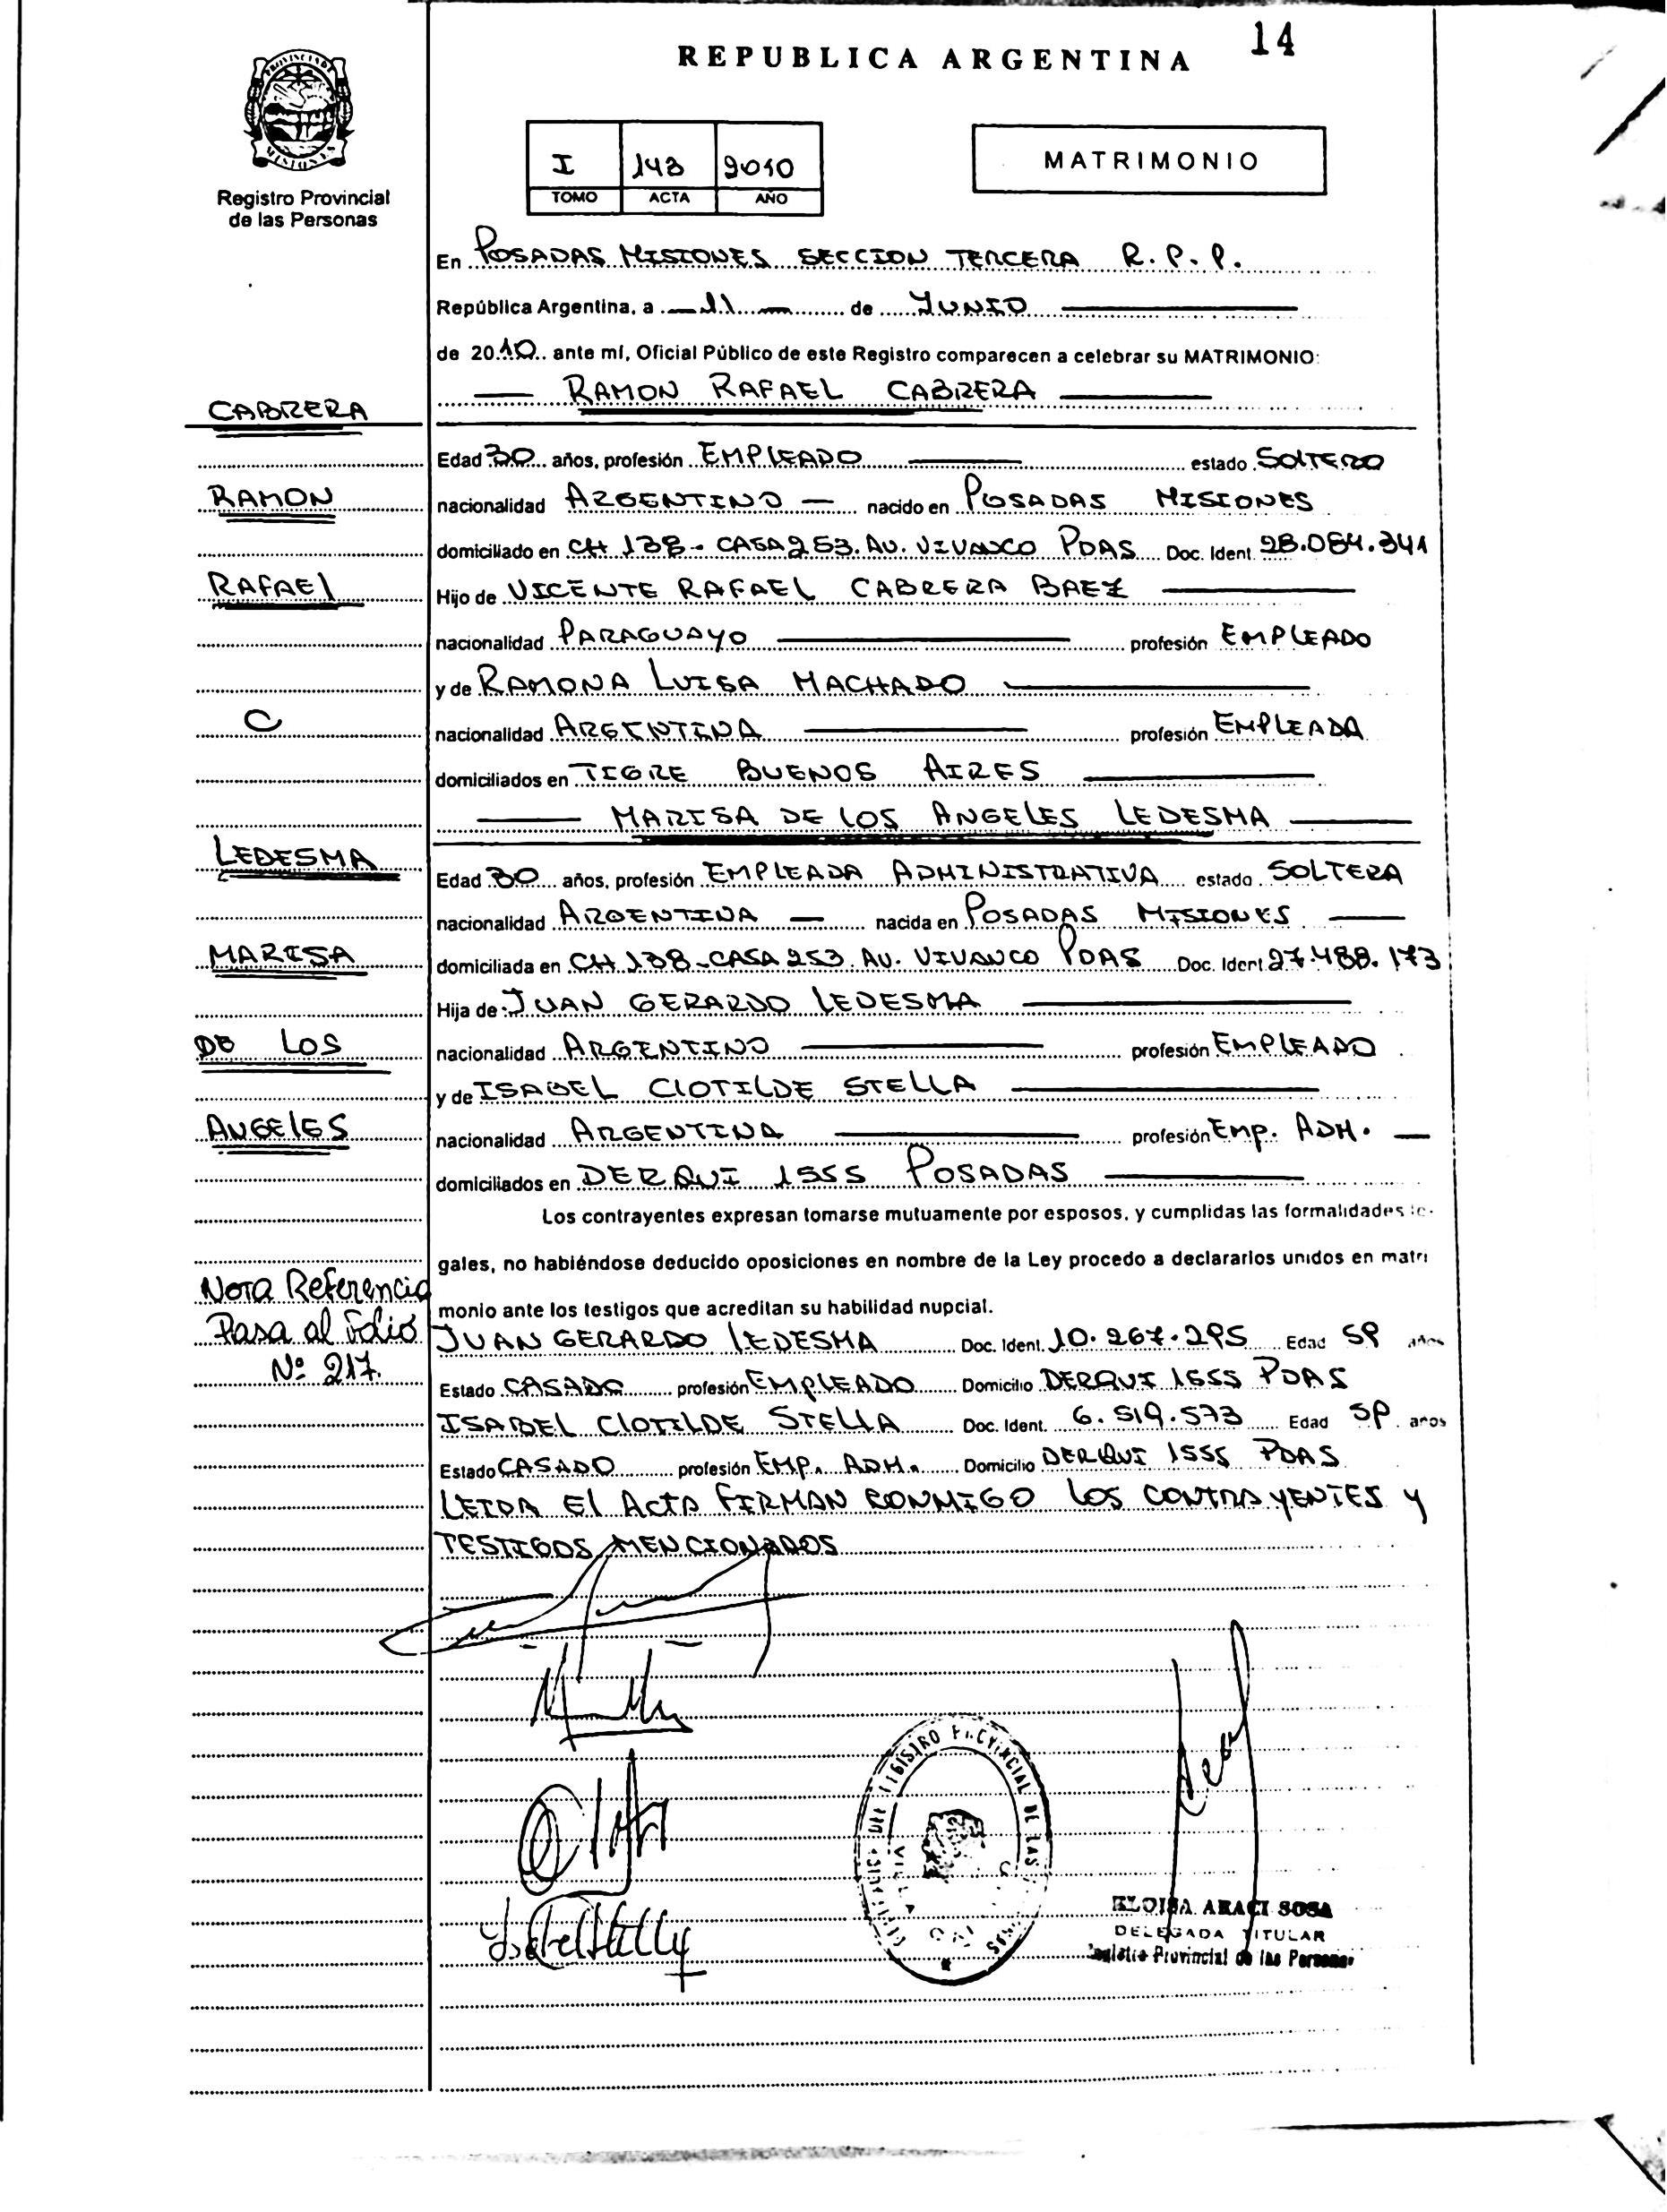 REPUBLICA ARGENTINA 14
PROVINCIA DE
MISIONES
Registro Provincial
de las Personas
I 143 2010
TOMO ACTA AÑO
MATRIMONIO
En POSADAS MISIONES SECCION TERCERA R.P.P.
República Argentina, a 11 de JUNIO
de 2010 ante mí, Oficial Público de este Registro comparecen a celebrar su MATRIMONIO:
RAMON RAFAEL CABRERA
CABRERA
Edad 30 años, profesión EMPLEADO estado SOLTERO
RAMON
nacionalidad ARGENTINO nacido en POSADAS MISIONES
domiciliado en CH 138 - CASA 253. AV. VIVANCO PDAS Doc. Ident. 28.084.341
RAFAEL
Hijo de VICENTE RAFAEL CABRERA BAEZ
nacionalidad PARAGUAYO profesión EMPLEADO
y de RAMONA LUISA MACHADO
C
nacionalidad ARGENTINA profesión EMPLEADA
domiciliados en TIGRE BUENOS AIRES
MARISA DE LOS ANGELES LEDESMA
LEDESMA
Edad 30 años, profesión EMPLEADA ADMINISTRATIVA estado SOLTERA
nacionalidad ARGENTINA nacida en POSADAS MISIONES
MARISA
domiciliada en CH 138 - CASA 253. AV. VIVANCO PDAS Doc. Ident. 27.488.173
Hija de JUAN GERARDO LEDESMA
DE LOS
nacionalidad ARGENTINO profesión EMPLEADO
y de ISABEL CLOTILDE STELLA
ANGELES
nacionalidad ARGENTINA profesión EMP. ADM.
domiciliados en DERQUI 1555 POSADAS
Los contrayentes expresan tomarse mutuamente por esposos, y cumplidas las formalidades le-
gales, no habiéndose deducido oposiciones en nombre de la Ley procedo a declararlos unidos en matri
monio ante los testigos que acreditan su habilidad nupcial.
Nota Referencia
Pasa al Folio
Nº 217.
JUAN GERARDO LEDESMA Doc. Ident. 10.267.295 Edad años
Estado CASADO profesión EMPLEADO Domicilio DERQUI 1555 PDAS
ISABEL CLOTILDE STELLA Doc. Ident. 6.519.573 Edad años
Estado CASADO profesión EMP. ADM. Domicilio DERQUI 1555 PDAS
LEIDA EL ACTA FIRMAN CONMIGO LOS CONTRAYENTES Y
TESTIGOS MENCIONADOS
REGISTRO PROVINCIAL DE LAS
ELOISA ARACI SOSA
DELEGADA TITULAR
Registro Provincial de las Personas